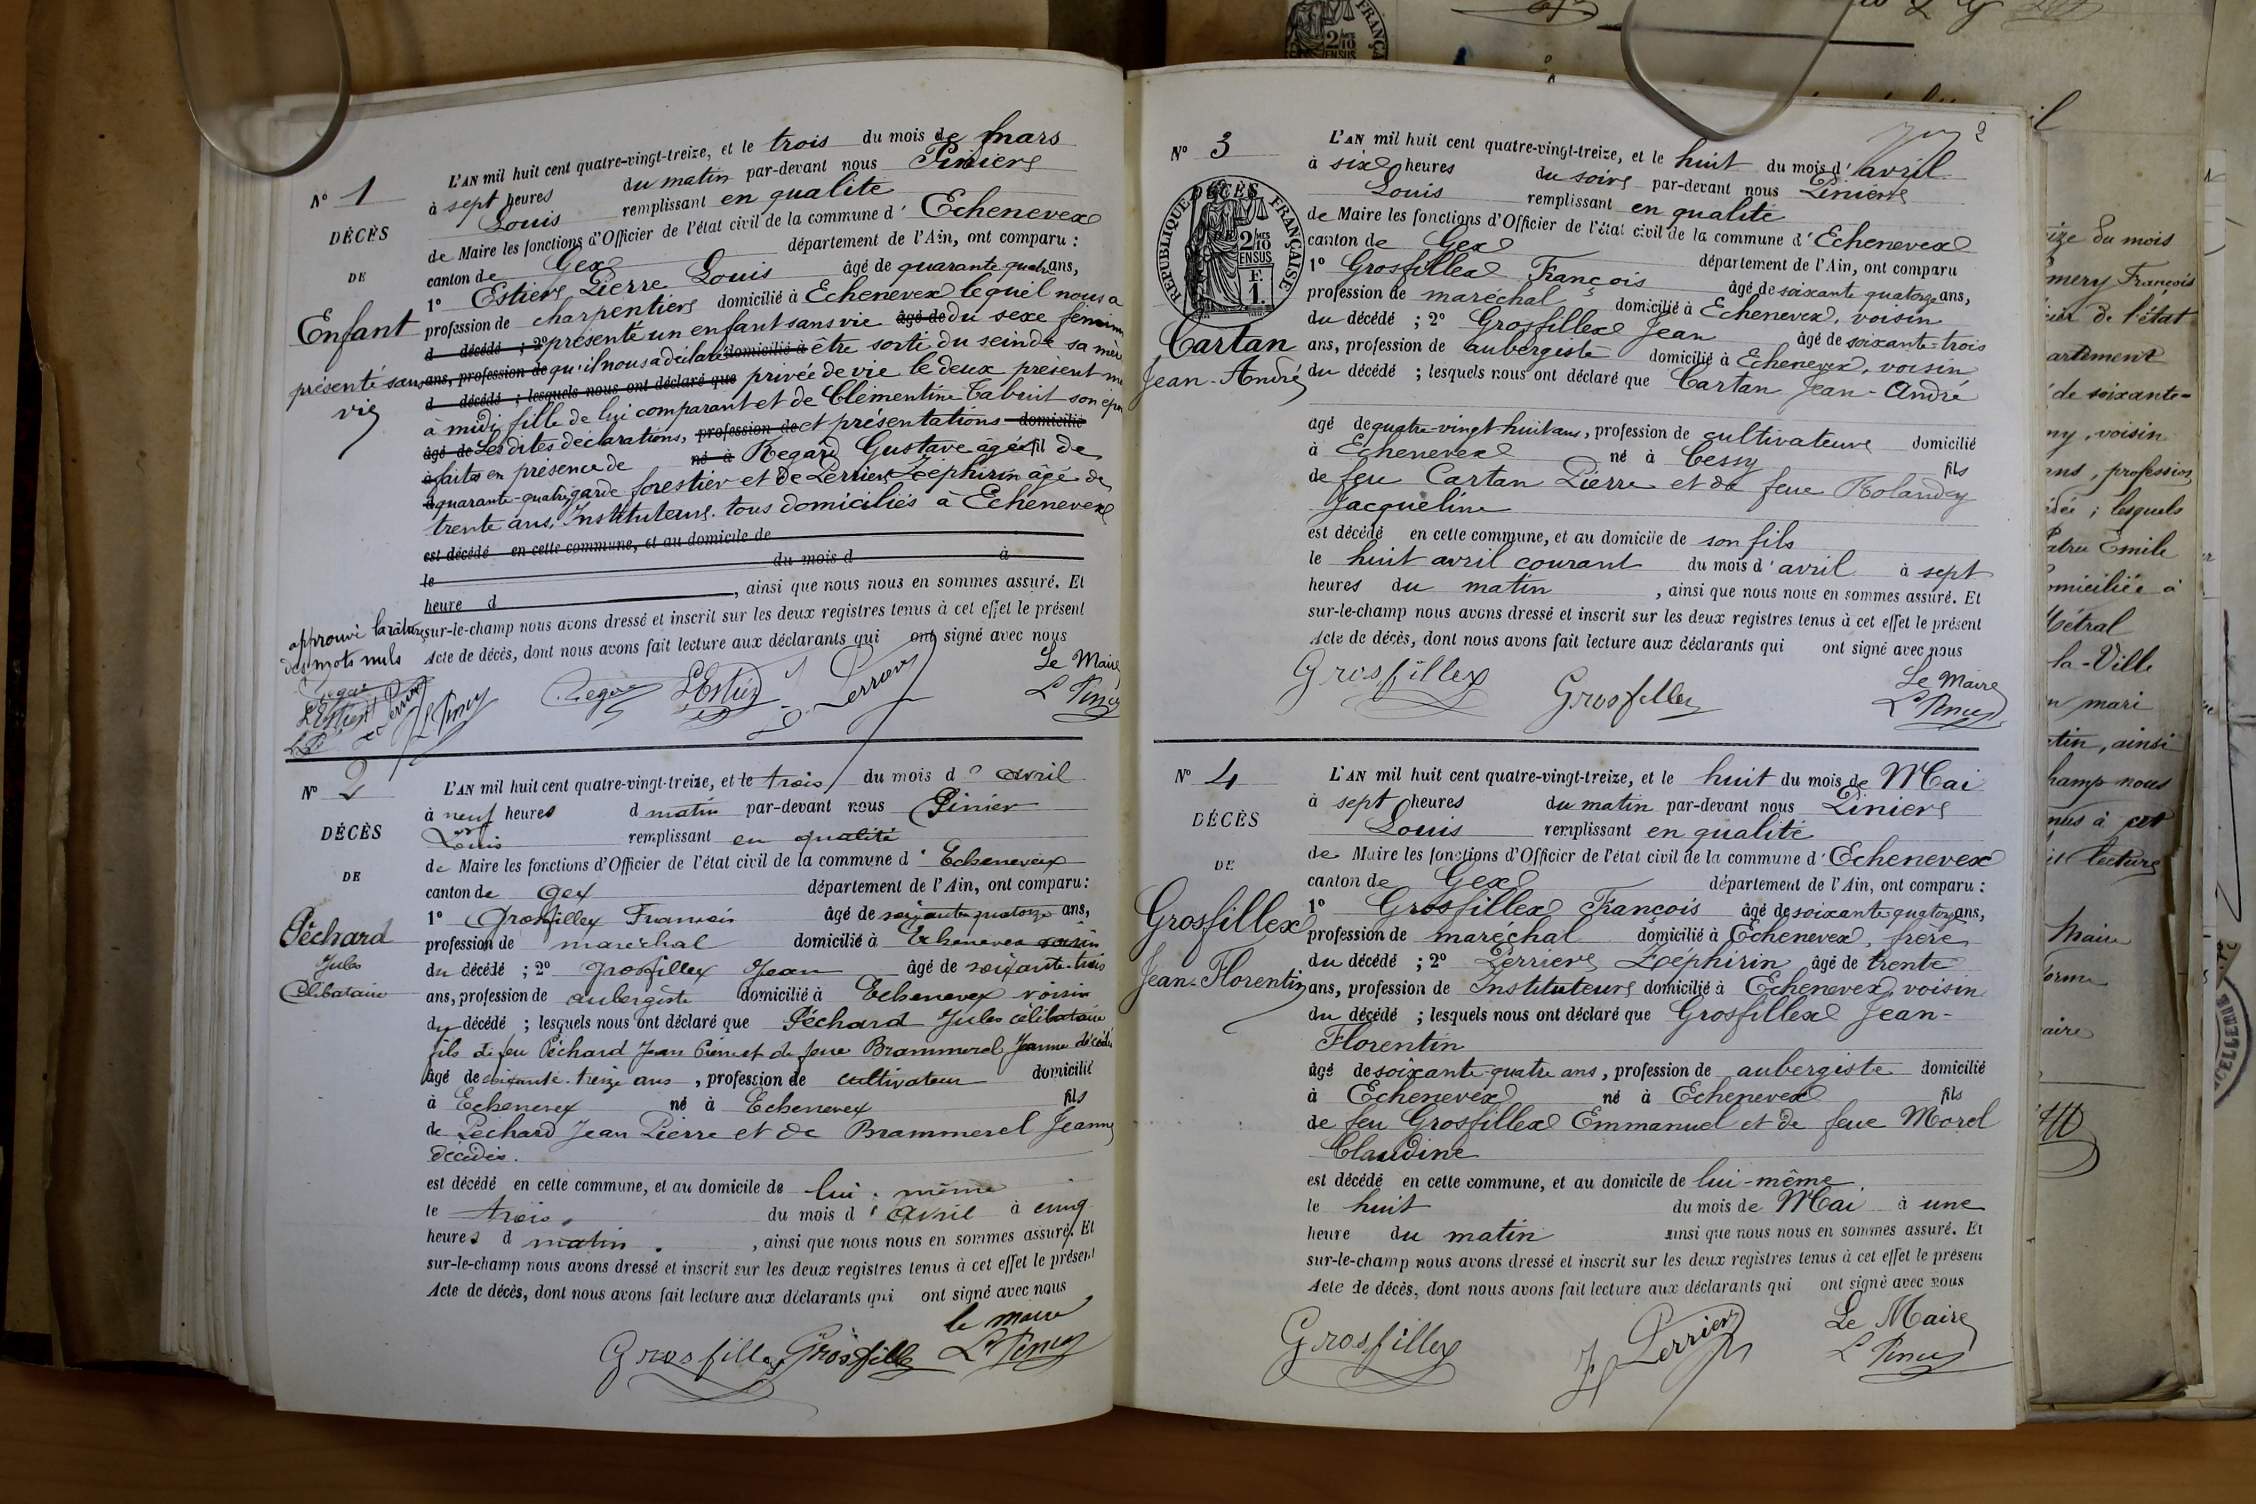 N° 1
DÉCÈS
DE
Enfant
présenté sans
vie
L'AN mil huit cent quatre-vingt-treize, et le trois du mois de mars
à sept heures du matin par-devant nous Pinier
Louis remplissant en qualité
de Maire les fonctions d'Officier de l'état civil de la commune d'Echenevex
canton de Gex département de l'Ain, ont comparu :
1° Estier Pierre Louis âgé de quarante quatre ans,
profession de charpentier domicilié à Echenevex lequel nous a
d décédé ; 2° présenté un enfant sans vie âgé de du sexe féminin
ans, profession de qu'il nous a déclaré domicilié à être sorti du sein de sa mère
d décédé ; lesquels nous ont déclaré que privée de vie le deux présent
à midi, fille de lui comparant et de Clémentine Tabuit son
âgé de Les dites déclarations, profession de et présentations domicilié
à faites en présence de né à Regard Gustave âgé fil de
quarante-quatre, garde forestier et de Perrier Zéphirin âgé de
trente ans, Instituteur. tous domiciliés à Echenevex
est décédé en cette commune, et au domicile de
le du mois d à
heure d , ainsi que nous nous en sommes assuré. Et
sur-le-champ nous avons dressé et inscrit sur les deux registres tenus à cet effet le présent
Acte de décès, dont nous avons fait lecture aux déclarants qui ont signé avec nous
approuvé la rature
des mots nuls
Le Maire
L Pinier
Regard L Estier Z. Perrier
N° 2
DÉCÈS
DE
Péchard
Jules
Célibataire
L'AN mil huit cent quatre-vingt-treize, et le trois du mois d'avril
à neuf heures d matin par-devant nous Pinier
Louis remplissant en qualité
de Maire les fonctions d'Officier de l'état civil de la commune d'Echenevex
canton de Gex département de l'Ain, ont comparu :
1° Grosfillex François âgé de soixante quatorze ans,
profession de maréchal domicilié à Echenevex voisin
du décédé ; 2° Grosfillex Jean âgé de soixante-trois
ans, profession de aubergiste domicilié à Echenevex voisin
du décédé ; lesquels nous ont déclaré que Péchard Jules célibataire
fils de feu Péchard Jean Pierre et de feue Brammerel Jeanne décédés
âgé de soixante-treize ans, profession de cultivateur domicilié
à Echenevex né à Echenevex fils
de Péchard Jean Pierre et de Brammerel Jeanne
décédés.
est décédé en cette commune, et au domicile de lui-même
le trois, du mois d'avril à cinq
heures d matin. , ainsi que nous nous en sommes assuré. Et
sur-le-champ nous avons dressé et inscrit sur les deux registres tenus à cet effet le présent
Acte de décès, dont nous avons fait lecture aux déclarants qui ont signé avec nous
le maire
Grosfillex Grosfillex L Pinier
2
N° 3
RÉPUBLIQUE FRANÇAISE
2/10 EN SUS
F. 1.
DÉCÈS
Cartan
Jean-André
L'AN mil huit cent quatre-vingt-treize, et le huit du mois d'avril
à six heures du soir par-devant nous Pinier
Louis remplissant en qualité
de Maire les fonctions d'Officier de l'état civil de la commune d'Echenevex
canton de Gex département de l'Ain, ont comparu
1° Grosfillex François âgé de soixante quatorze ans,
profession de maréchal domicilié à Echenevex, voisin
du décédé ; 2° Grosfillex Jean âgé de soixante-trois
ans, profession de aubergiste domicilié à Echenevex, voisin
du décédé ; lesquels nous ont déclaré que Cartan Jean-André
âgé de quatre-vingt-huit ans, profession de cultivateur domicilié
à Echenevex né à Cessy fils
de feu Cartan Pierre et de feue Rolandey
Jacqueline
est décédé en cette commune, et au domicile de son fils
le huit avril courant du mois d'avril à sept
heures du matin , ainsi que nous nous en sommes assuré. Et
sur-le-champ nous avons dressé et inscrit sur les deux registres tenus à cet effet le présent
Acte de décès, dont nous avons fait lecture aux déclarants qui ont signé avec nous
Grosfillex Grosfillex Le Maire
L Pinier
N° 4
DÉCÈS
DE
Grosfillex
Jean-Florentin
L'AN mil huit cent quatre-vingt-treize, et le huit du mois de Mai
à sept heures du matin par-devant nous Pinier
Louis remplissant en qualité
de Maire les fonctions d'Officier de l'état civil de la commune d'Echenevex
canton de Gex département de l'Ain, ont comparu :
1° Grosfillex François âgé de soixante quatorze ans,
profession de maréchal domicilié à Echenevex, frère
du décédé ; 2° Perrier Zéphirin âgé de trente
ans, profession de Instituteur domicilié à Echenevex, voisin
du décédé ; lesquels nous ont déclaré que Grosfillex Jean-
Florentin
âgé de soixante-quatre ans, profession de aubergiste domicilié
à Echenevex né à Echenevex fils
de feu Grosfillex Emmanuel et de feue Morel
Claudine
est décédé en cette commune, et au domicile de lui-même
le huit du mois de Mai à une
heure du matin ainsi que nous nous en sommes assuré. Et
sur-le-champ nous avons dressé et inscrit sur les deux registres tenus à cet effet le présent
Acte de décès, dont nous avons fait lecture aux déclarants qui ont signé avec nous
Grosfillex Z Perrier Le Maire
L Pinier
du mois
François
de l'état
de soixante-
voisin
profession
lesquels
Emile
domiciliée à
Métral
la-Ville
mari
ainsi
champ nous
à cet
lecture
Maire